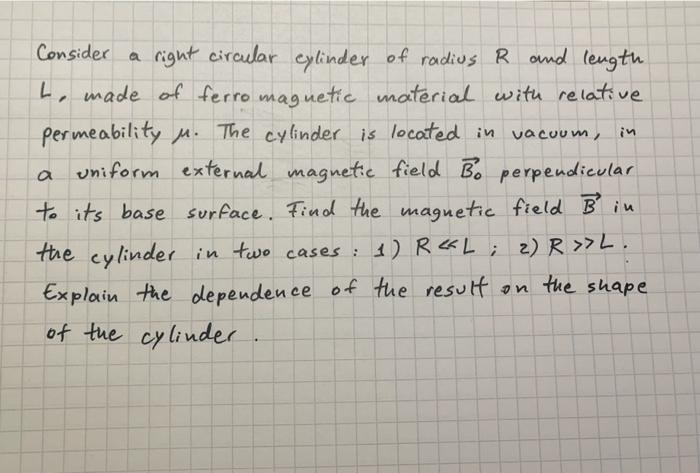 Consider a right circular cylinder of radius R and length
L, made of ferromagnetic material with relative
permeability μ. The cylinder is located in vacuum, in
a uniform external magnetic field B⃗₀ perpendicular
to its base surface. Find the magnetic field B⃗ in
the cylinder in two cases : 1) R ≪ L ; 2) R >> L .
Explain the dependence of the result on the shape
of the cylinder .